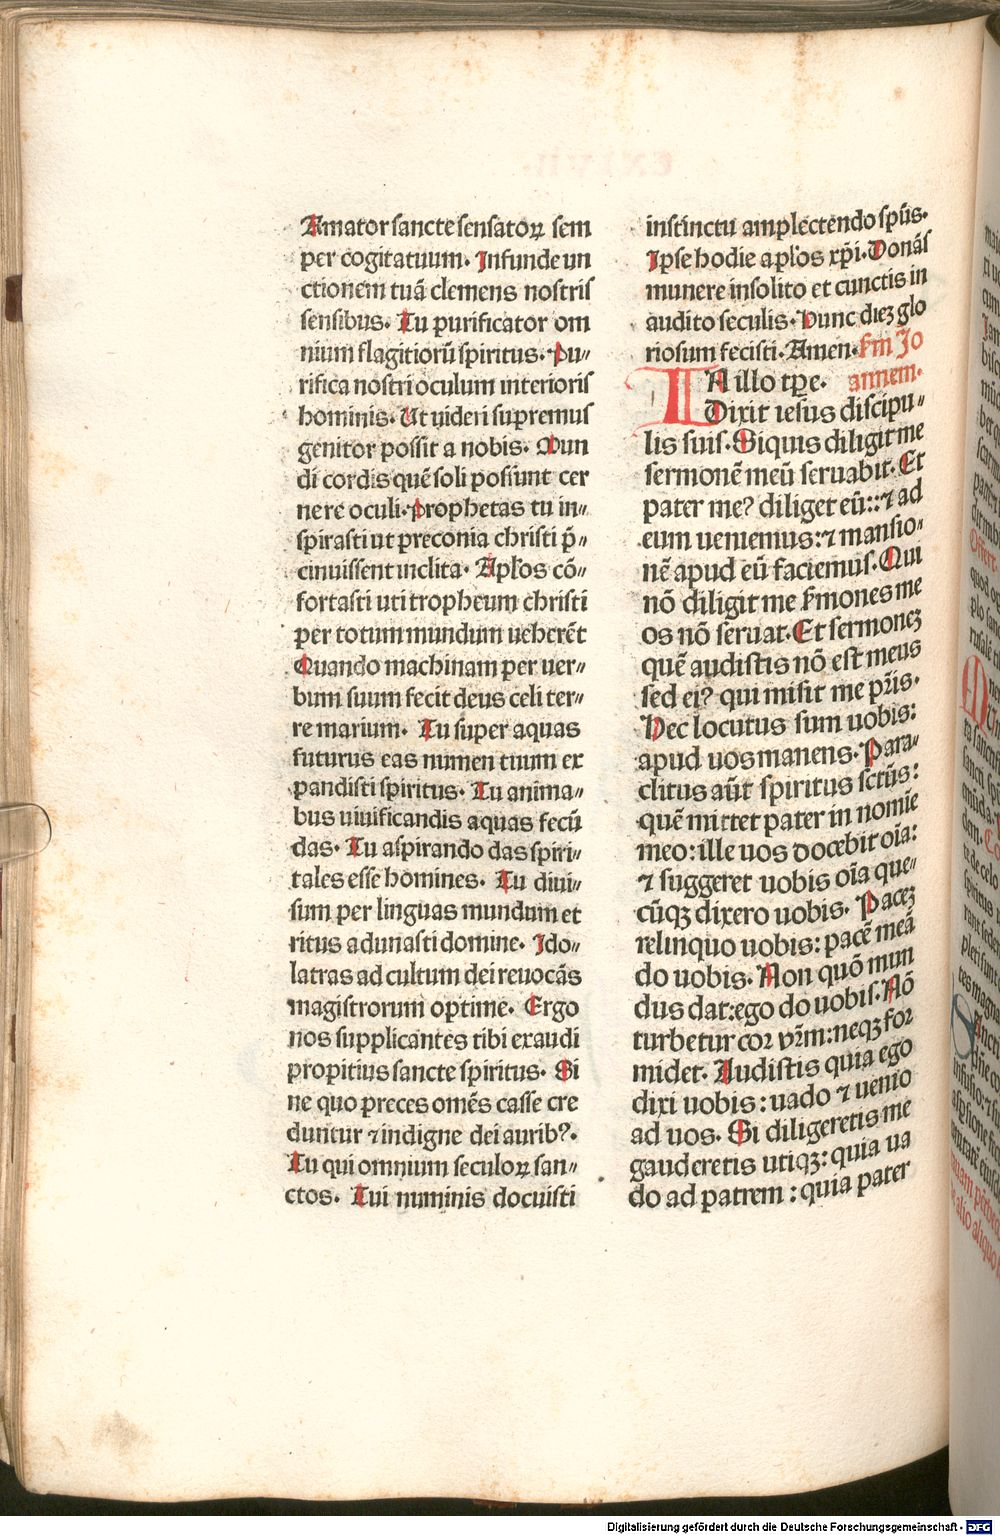 Amator sancte sensatoꝝ sem
per cogitatuum. Infunde un
ctionem tuā clemens nostris
sensibus. Tu purificator om
nium flagitiorū spiritus. Pu⸗
rifica nostri oculum interioris
hominis. Ut uideri supremus
genitor possit a nobis. Mun
di cordis quē soli possunt cer
nere oculi. Prophetas tu in⸗
spirasti ut preconia christi p̄⸗
cinuissent inclita. Apl'os cō⸗
fortasti uti tropheum christi
per totum mundum ueherēt
Quando machinam per uer⸗
bum suum fecit deus celi ter⸗
re marium. Tu super aquas
futurus eas numen tuum ex
pandisti spiritus. Tu anima⸗
bus uiuificandis aquas fecū
das. Tu aspirando das spiri⸗
tales esse homines. Tu diui⸗
sum per linguas mundum et
ritus adunasti domine. Ido⸗
latras ad cultum dei reuocās
magistrorum optime. Ergo
nos supplicantes tibi exaudi
propitius sancte spiritus. Si
ne quo preces omēs casse cre
duntur ⁊ indigne dei aurib?.
Tu qui omnium seculoꝝ san⸗
ctos. Tui numinis docuisti
instinctu amplectendo sp̄us.
Ipse hodie apl'os xp̄i. Donās
munere insolito et cunctis in
audito seculis. Hunc diez glo
riosum fecisti. Amen. ẜm Jo
IN illo tp̄e. annem.
Dixit iesus discipu⸗
lis suis. Siquis diligit me
sermonē meū seruabit. Et
pater me? diliget eū:: ⁊ ad
eum ueniemus: ⁊ mansio⸗
nē apud eū faciemus. Qui
nō diligit me ẜmones me
os nō seruat. Et sermonez
quē audistis nō est meus
sed ei? qui misit me pr̄is.
Hec locutus sum uobis:
apud uos manens. Para⸗
clitus aūt spiritus sctūs:
quē mittet pater in nomīe
meo: ille uos docebit oīa:
⁊ suggeret uobis oīa que⸗
cūqꝫ dixero uobis. Pacez
relinquo uobis: pacē meā
do uobis. Non quō mun
dus dat: ego do uobis. Nō
turbetur cor vr̄m: neqꝫ for
midet. Audistis quia ego
dixi uobis: uado ⁊ uenio
ad uos. Si diligeretis me
gauderetis utiqꝫ: quia ua
do ad patrem: quia pater
Digitalisierung gefördert durch die Deutsche Forschungsgemeinschaft - DFG